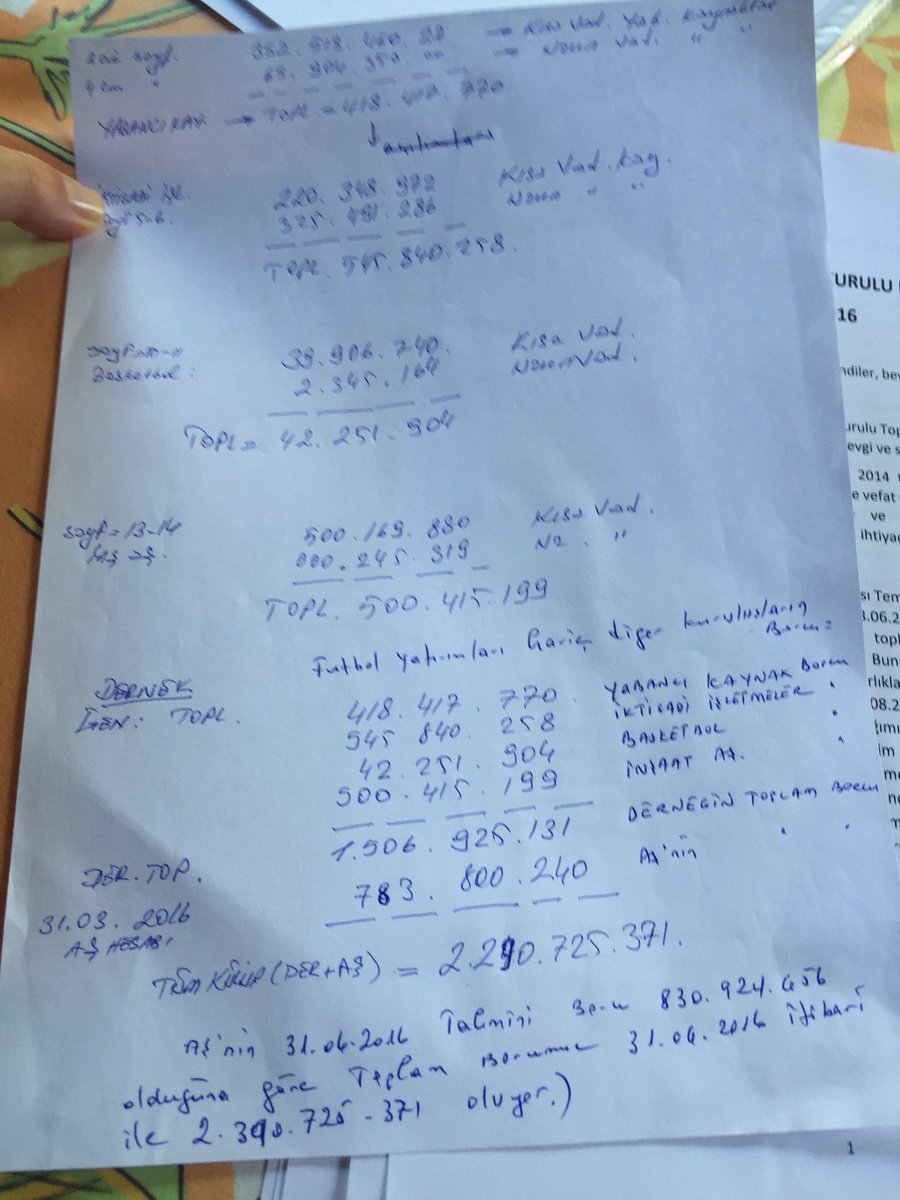 352.513.460.27 → Kısa Vad. Yab. Kaynaklar
65.904.350.00 → Uzun Vad. " "
YABANCI KAY → TOPL = 418.417.770
220.348.972 Kısa Vad. kay.
Sayf 5-6. 325.491.286 Uzun " "
TOPL. 545.840.258.
39.906.740. Kısa Vad.
Basketbol: 2.345.164 Uzun Vad.
TOPL = 42.251.904
Sayf = 13-14 500.169.880 Kısa Vad.
İnş aş. 000.245.319 Uz. "
TOPL. 500.415.199
Futbol yatırımları hariç diğer kuruluşların Borcu:
DERNEK
GEN: TOPL. 418.417.770 YABANCI KAYNAK Borcu
545.840.258 İKTİSADİ İŞLETMELER "
42.251.904 BASKETBOL "
500.415.199 İNŞAAT AŞ. "
DER. TOP. 1.506.925.131 DERNEĞİN TOPLAM BORCU
31.03.2016 783.800.240 AŞ'nin " "
AŞ HESABI
TÜM KULÜP (DER+AŞ) = 2.290.725.371.
AŞ'nin 31.04.2016 Tahmini Borcu 830.924.656
olduğuna göre Toplam Borcumuz 31.04.2016 itibari
ile 2.390.725-371 oluyor.)
URULU
16
ndiler, bev
urulu Top
evgi ve s
2014
e vefat
ve
ihtiyaç
sı Tem
3.06.2
topl
Bun
rlıkla
08.2
ğımı
im
me
1